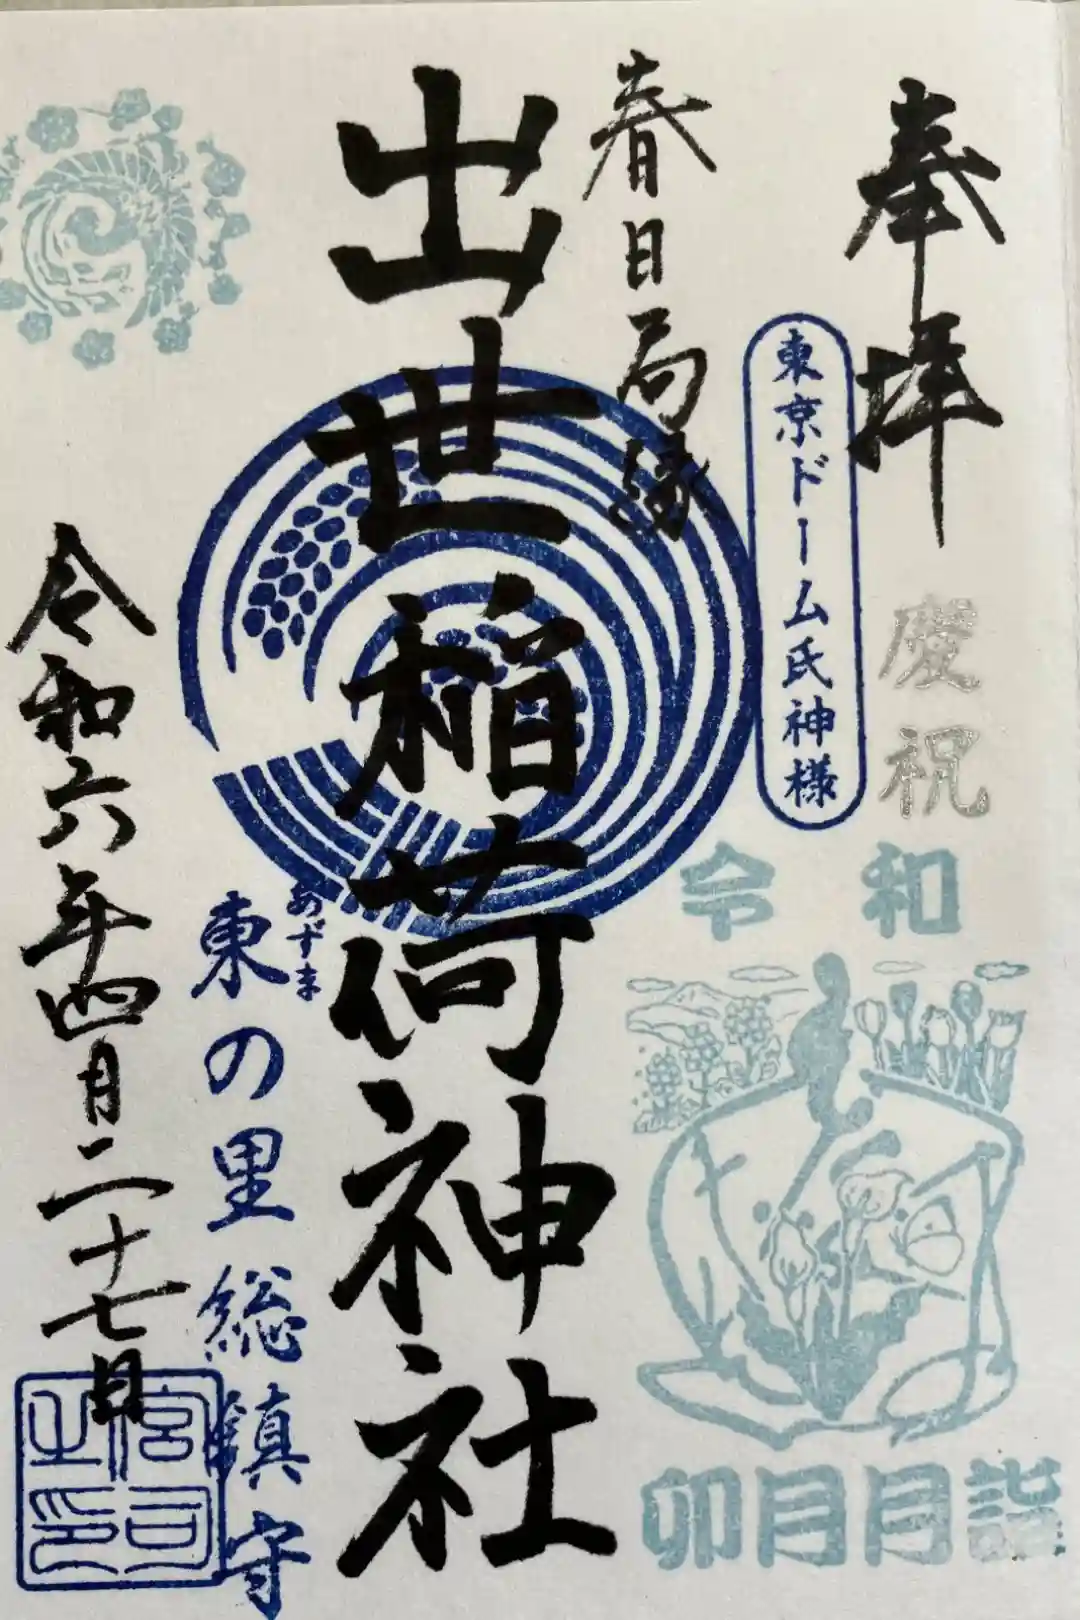 奉拝
慶祝
東京ドーム氏神様
春日局縁
出世稲荷神社
令和
卯月月詣
あずま
東の里総鎮守
令和六年四月二十七日
宮司之印